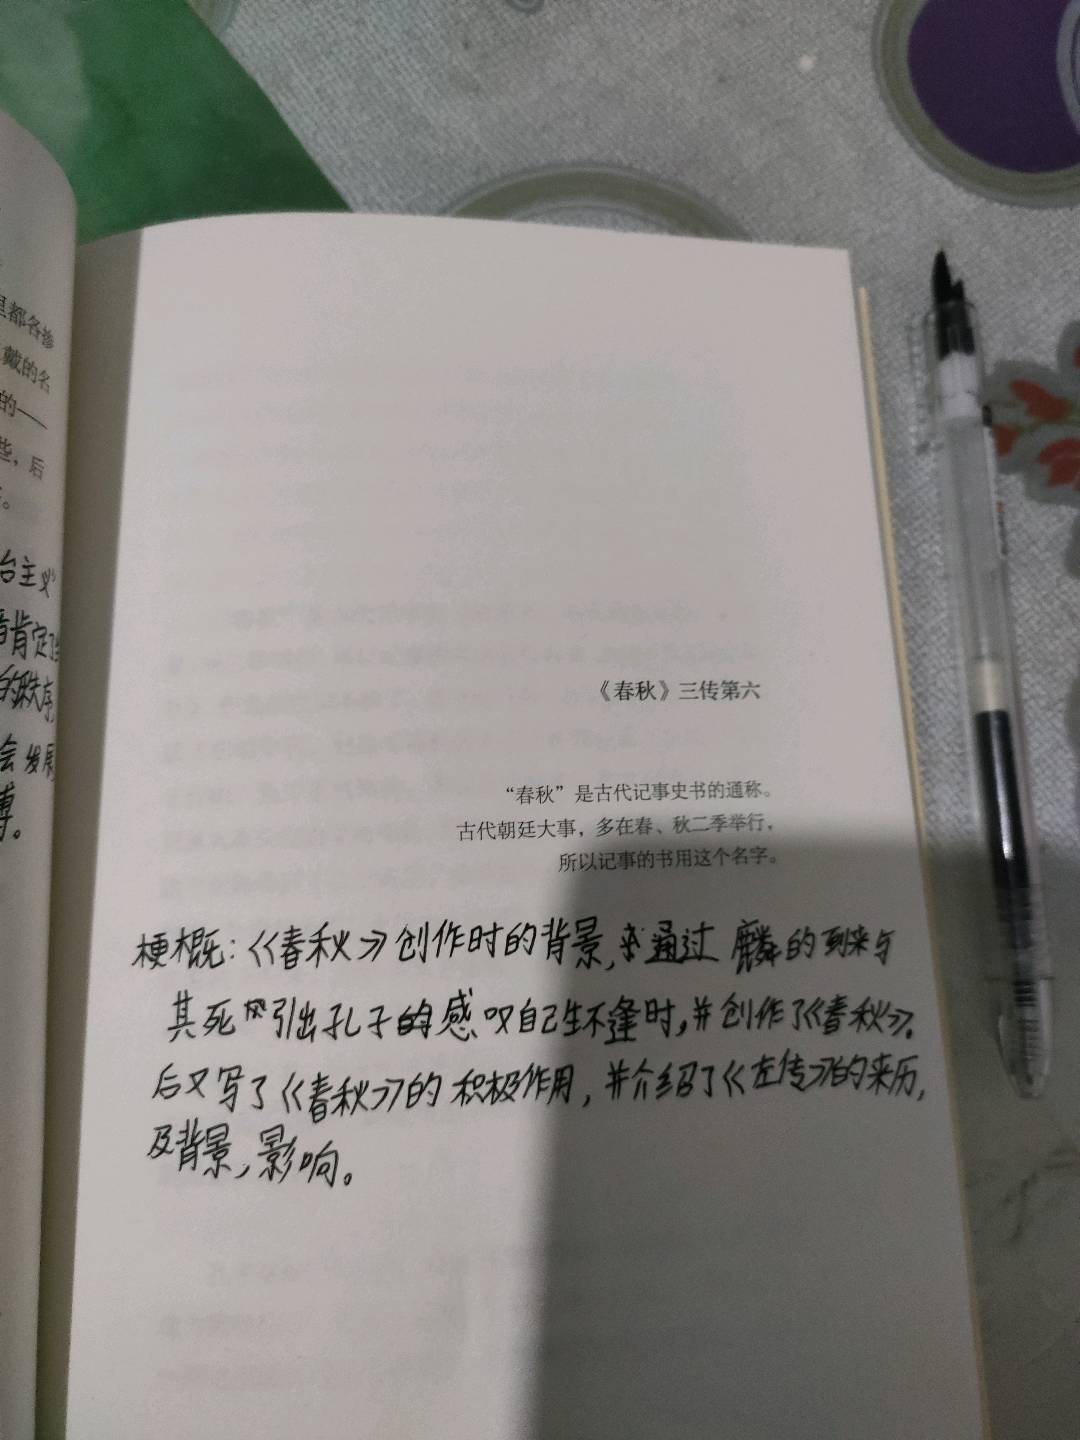 里都各掺
戴的名
的——
些，后
。
台主义”
肯定了当
的秩序
会发展
博。
《春秋》三传第六
“春秋”是古代记事史书的通称。
古代朝廷大事，多在春、秋二季举行，
所以记事的书用这个名字。
梗概：《春秋》创作时的背景，通过麟的到来与
其死引出孔子的感叹自己生不逢时，并创作了《春秋》。
后又写了《春秋》的积极作用，并介绍了《左传》的来历，
及背景，影响。